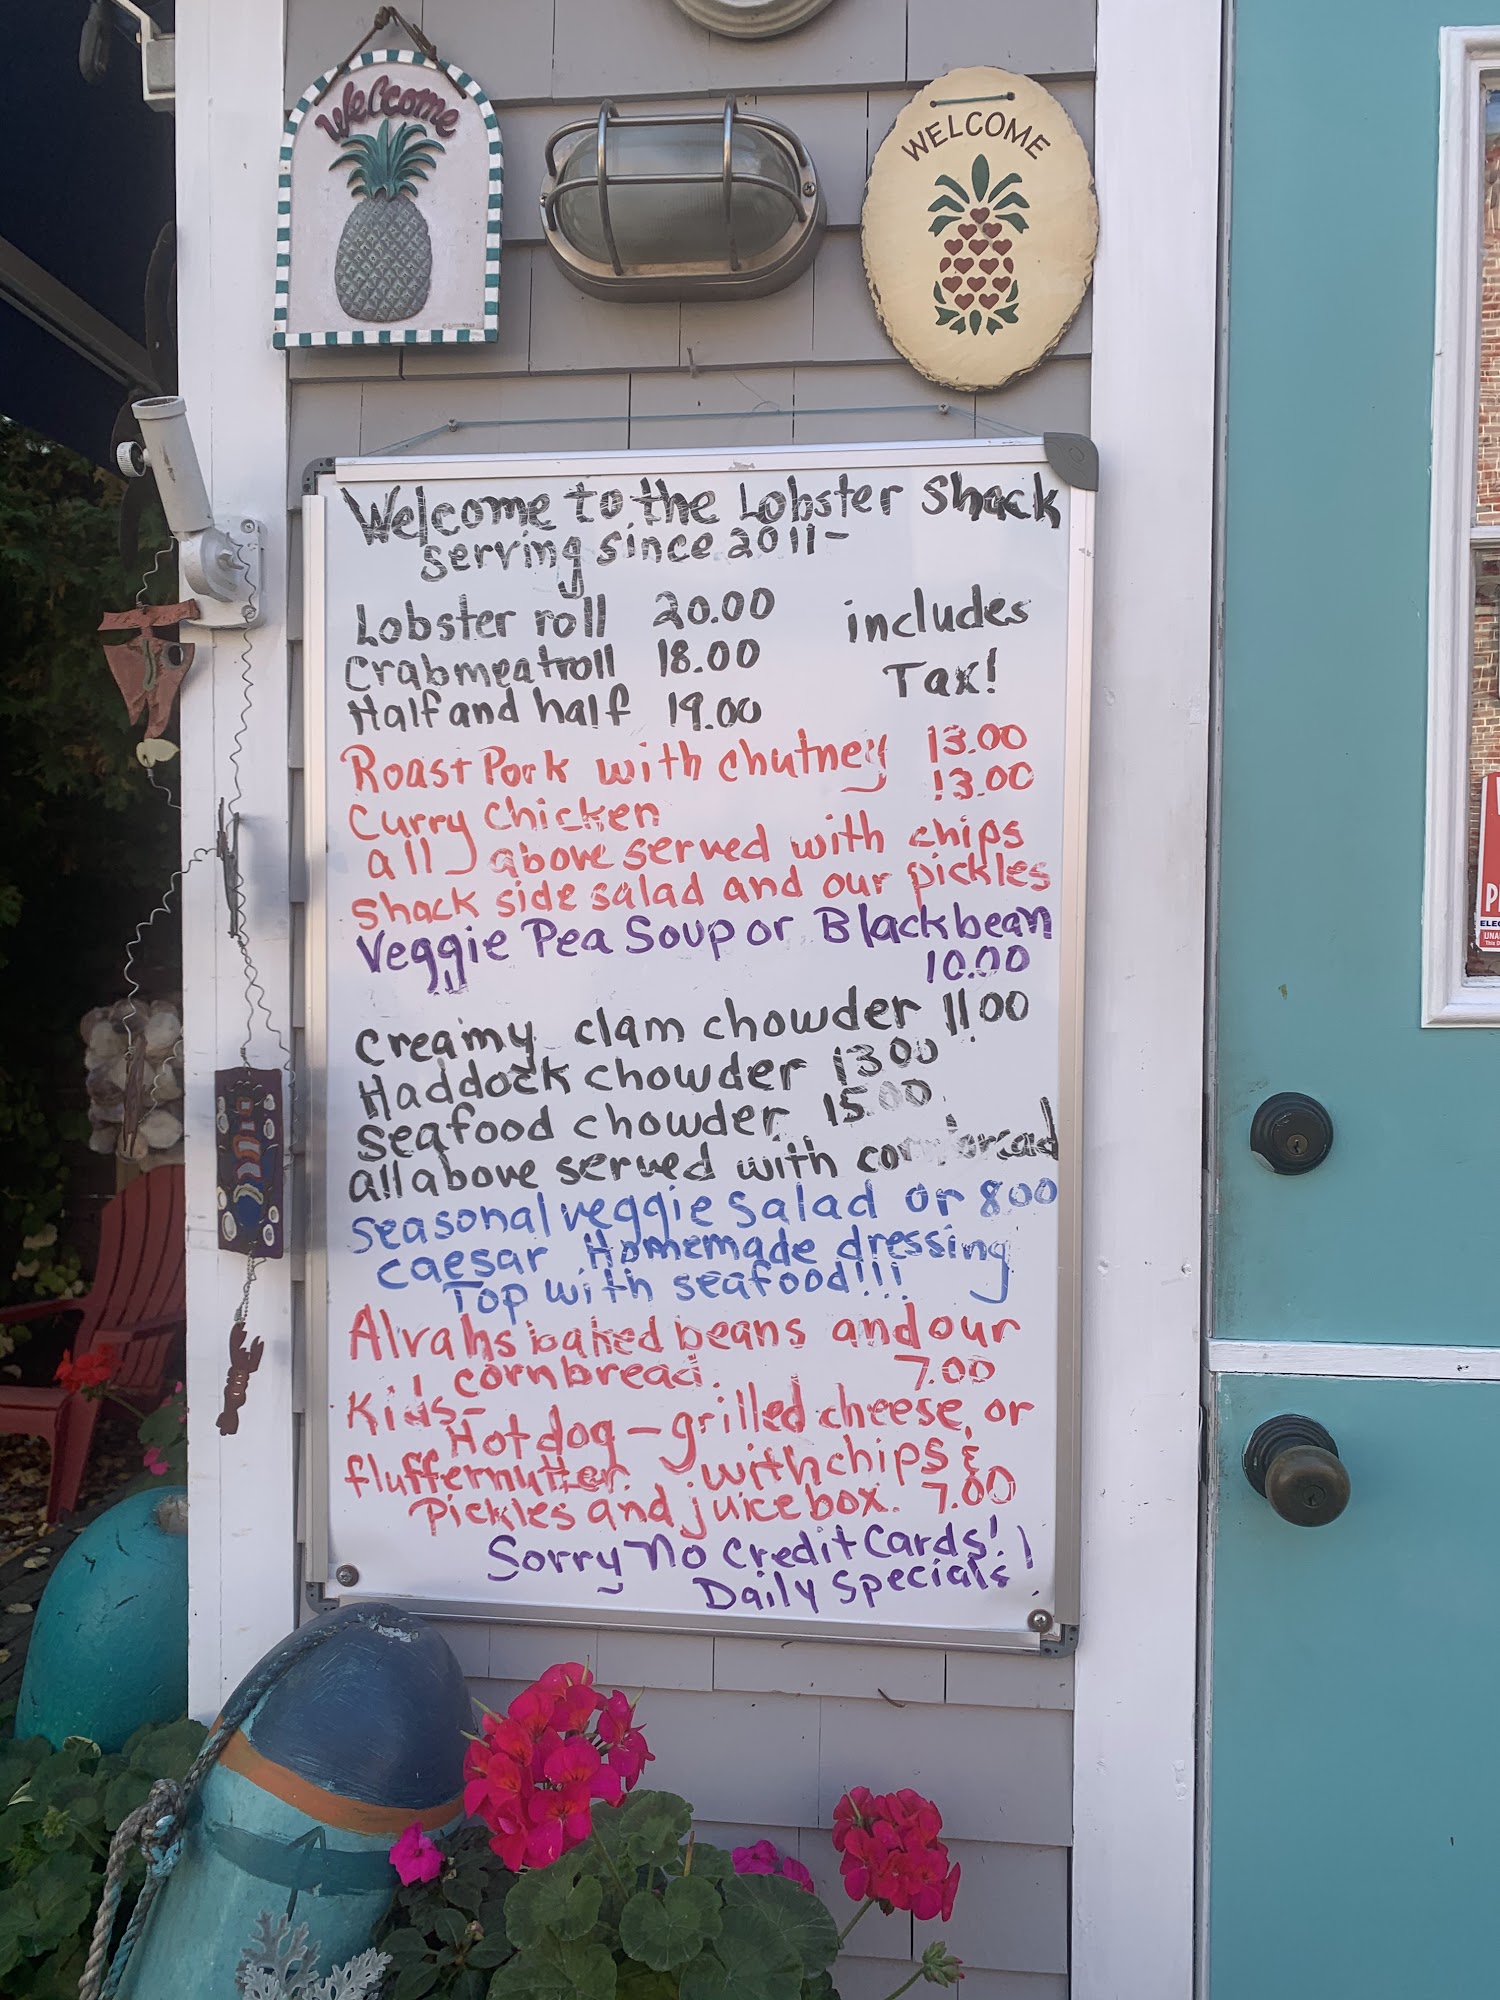 Welcome
WELCOME
Welcome to the Lobster Shack
serving since 2011-
Lobster roll 20.00 includes
Crabmeat roll 18.00 Tax!
Half and half 19.00
Roast Pork with chutney 13.00
Curry Chicken 13.00
all above served with chips
shack side salad and our pickles
Veggie Pea Soup or Blackbean
10.00
Creamy clam chowder 11.00
Haddock chowder 13.00
Seafood chowder 15.00
all above served with cornbread
Seasonal veggie salad or 8.00
caesar. Homemade dressing
Top with seafood!!!
Alvahs baked beans and our
cornbread. 7.00
Kids-
Hotdog - grilled cheese, or
fluffernutter. with chips &
Pickles and juice box. 7.00
Sorry No Credit Cards!
Daily Specials!